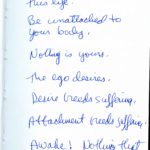 This life.
Be unattached to
your body.
Nothing is yours.
The ego desires.
Desire breeds suffering.
Attachment breeds suffering.
Awake! Nothing that